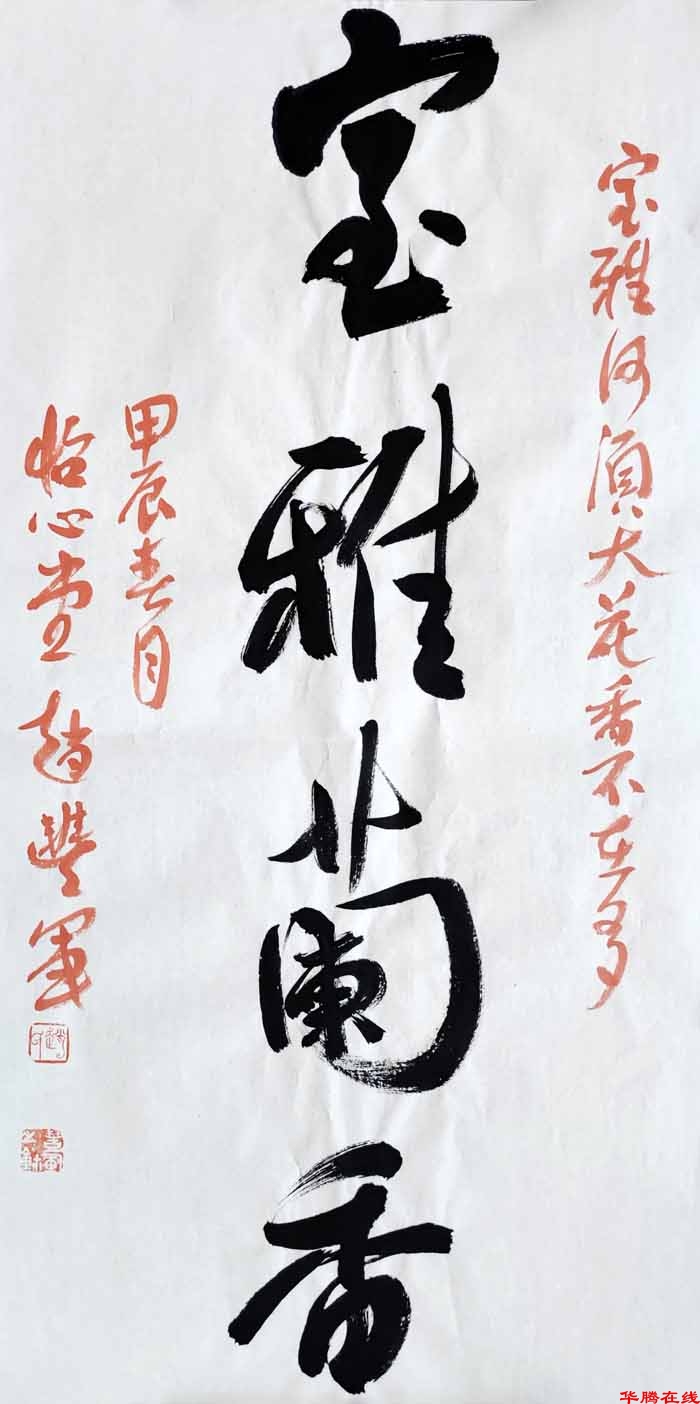 室雅何須大花香不在多
室雅蘭香
甲辰春月
怡心堂趙豐軍
华腾在线